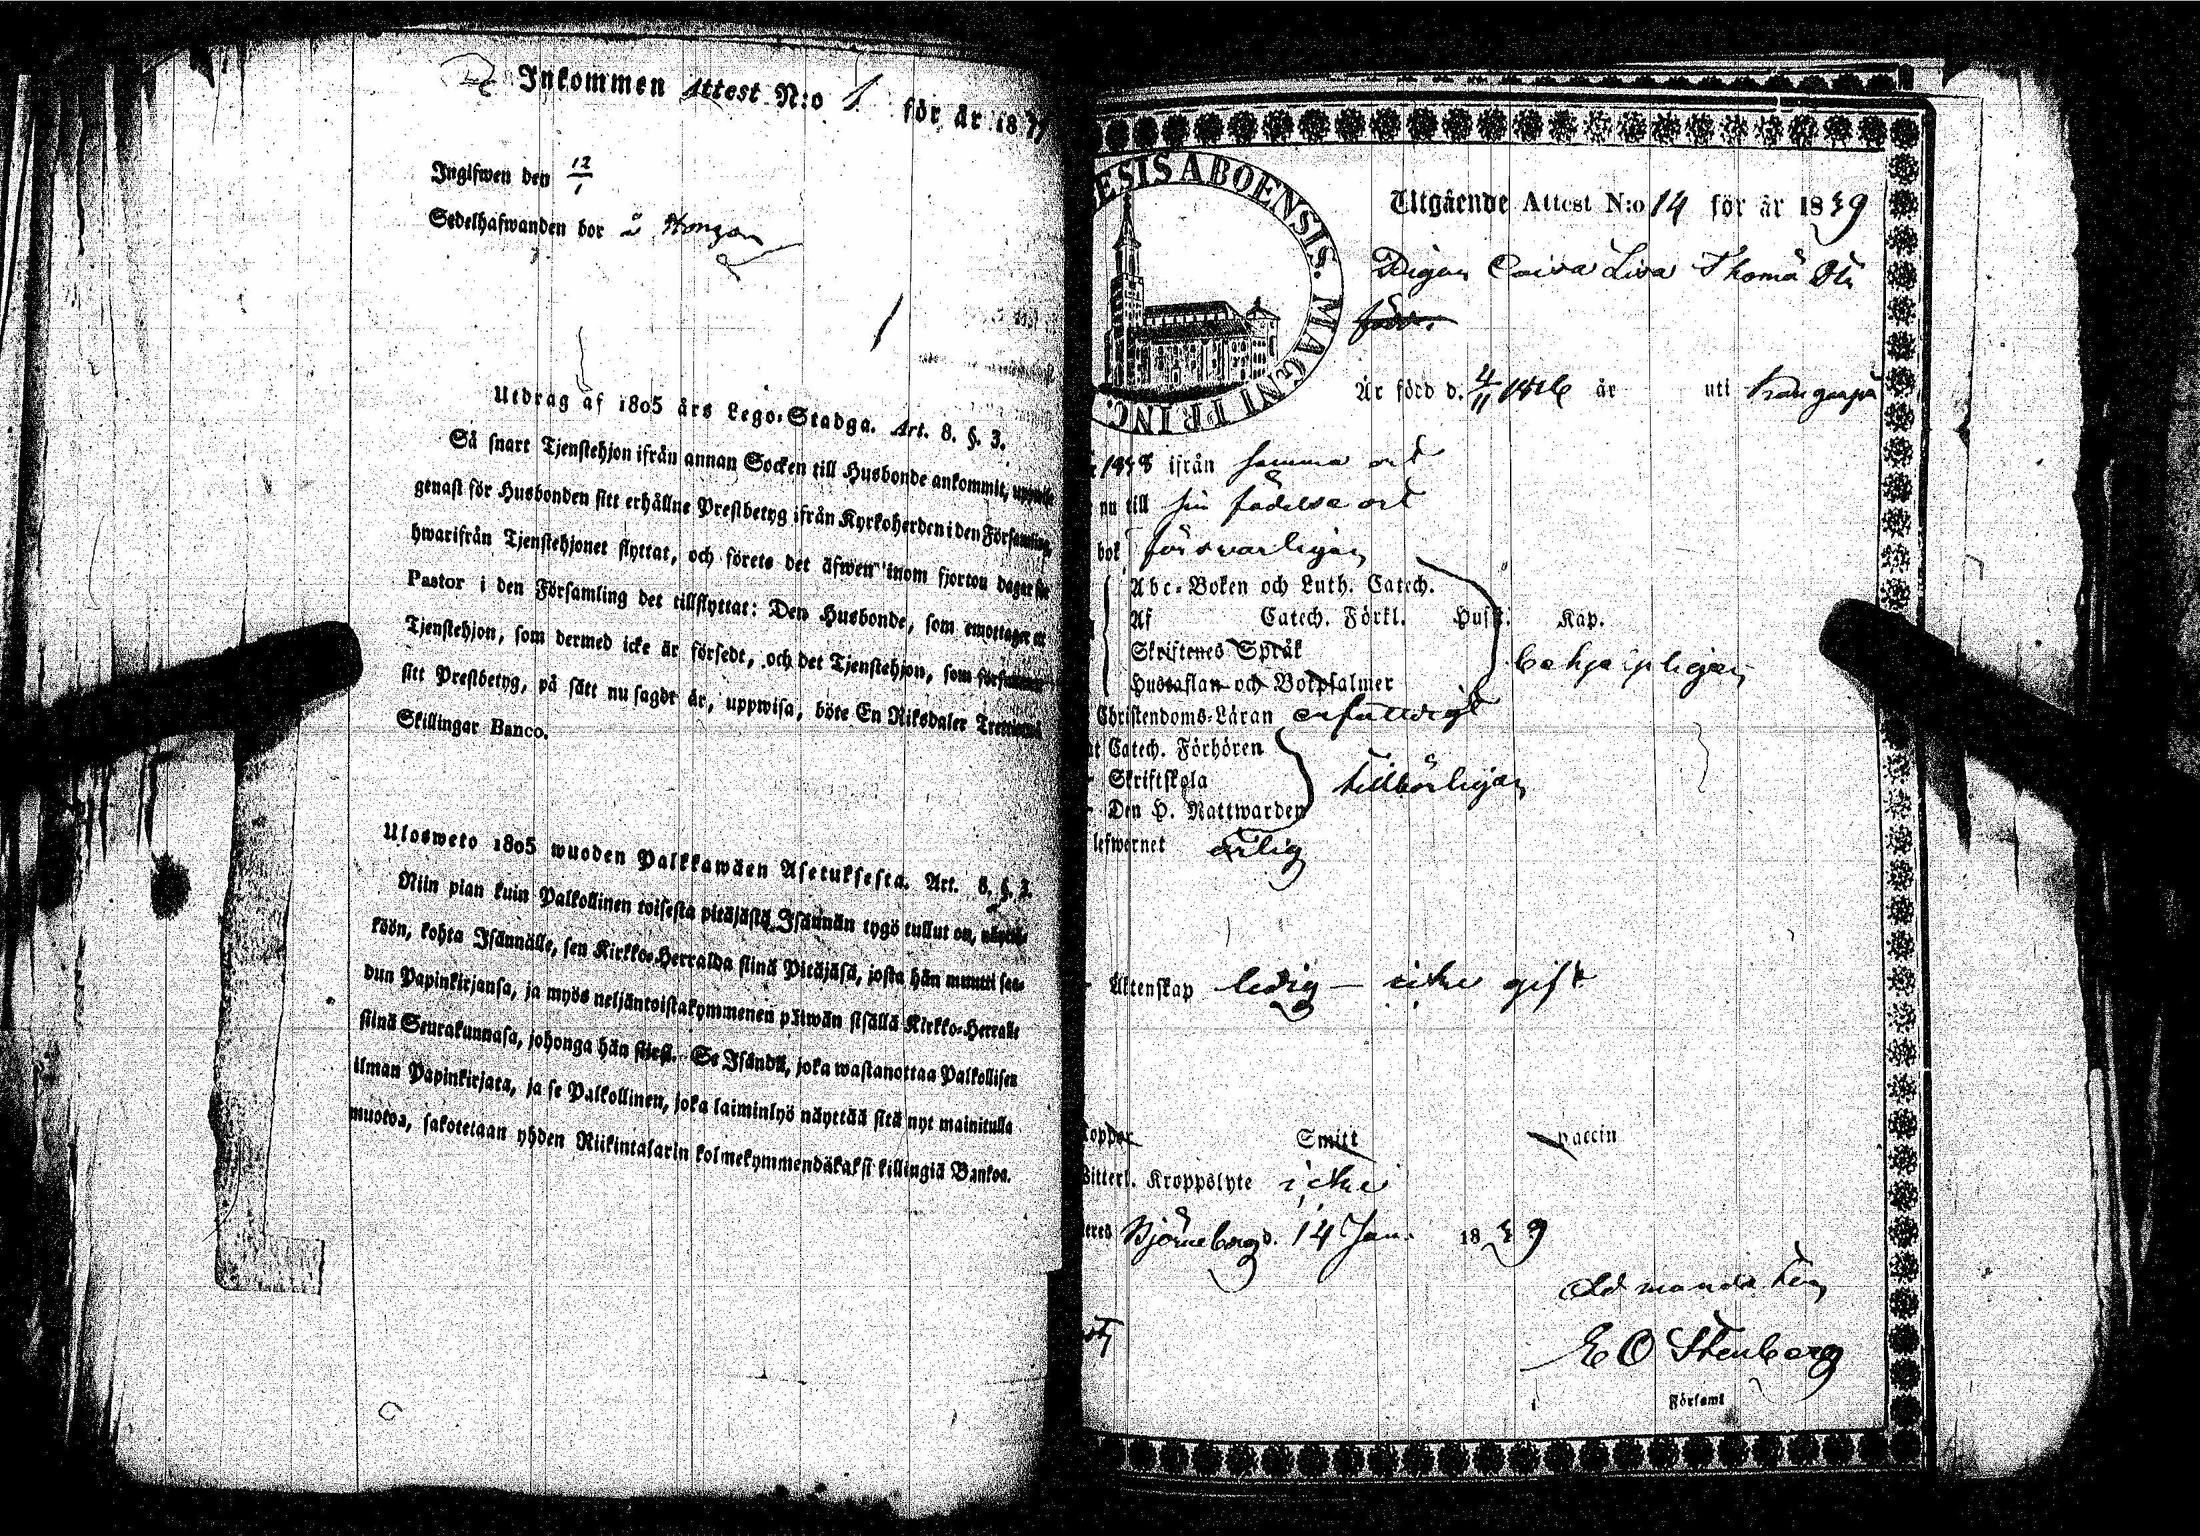 Inkommen Attest N:o 1 för år 18
Ingifwen den 12/1
Sedelhafwanden bor å
1
Utdrag af 1805 års Lego-Stadga. Art. 8. §. 3.
Så snart Tjenstehjon ifrån annan Socken till Husbonde ankommit,
genast för Husbonden sitt erhållne Prestbetyg ifrån Kyrkoherden i den Församling,
hwarifrån Tjenstehjonet flyttat, och förete det äfwen inom fjorton dagar för
Pastor i den Församling det tillflyttat: Den Husbonde, som emottager et
Tjenstehjon, som dermed icke är försedt, och det Tjenstehjon, som försummar
sitt Prestbetyg, på sätt nu sagdt är, uppwisa, böte En Riksdaler Trettiotvå
Skillingar Banco.
Ulosweto 1805 wuoden Palkkawäen Asetuksesta. Art. 8. §. 3.
Niin pian kuin Palkollinen toisesta pitäjästä Isännän tygö tullut on,
köön, kohta Isännälle, sen Kirkko-Herralda siinä Pitäjäsä, josta hän muutti saa-
dun Papinkirjansa, ja myös neljäntoistakymmenen päiwän sisällä Kirkko-Herralle
siinä Seurakunnasa, johonga hän siirsi. Se Isändä, joka wastanottaa Palkollisen
ilman Papinkirjata, ja se Palkollinen, joka laiminlyö näyttää sitä nyt mainitulla
muotoa, sakotetaan yhden Riikintalarin kolmekymmendäkaksi killingiä Bankoa.
ESIS ABOENSIS. MAGNI PRINC.
Utgående Attest N:o 14 för år 1839
Pigan Caisa Lisa Thomä Dtr
född.
Är född d. 4/11 1816 år uti Kangasp
1838 ifrån samma ort
nu till sin födelse ort
bok försvarligen
Abc-Boken och Luth. Catech.
Af Catech. Förkl. Husf. Kap.
Skriftenes Språk
Hustaflan och Botpsalmer
behjelpligen
Christendoms-Läran enfaldigt
Catech. Förhören
Skriftskola
Den H. Nattwarden
tillbörligen
lefwernet ärlig
Äktenskap ledig – icke gift
Koppor Smitt vaccin
Witterl. Kroppslyte icke
Björneborg d. 14 Jan. 1839
E O Stenberg
Församl